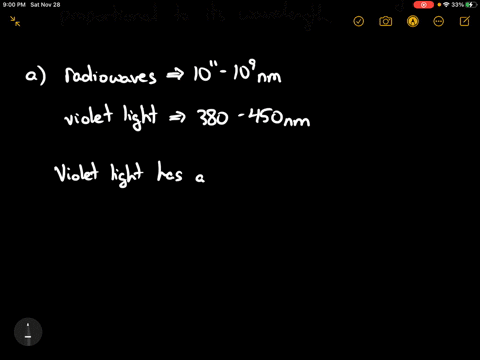 9:00 PM Sat Nov 28
33%
proportional to its wavelength
a) radiowaves ⇒ 10¹¹ - 10⁹ nm
violet light ⇒ 380 - 450nm
Violet light has a